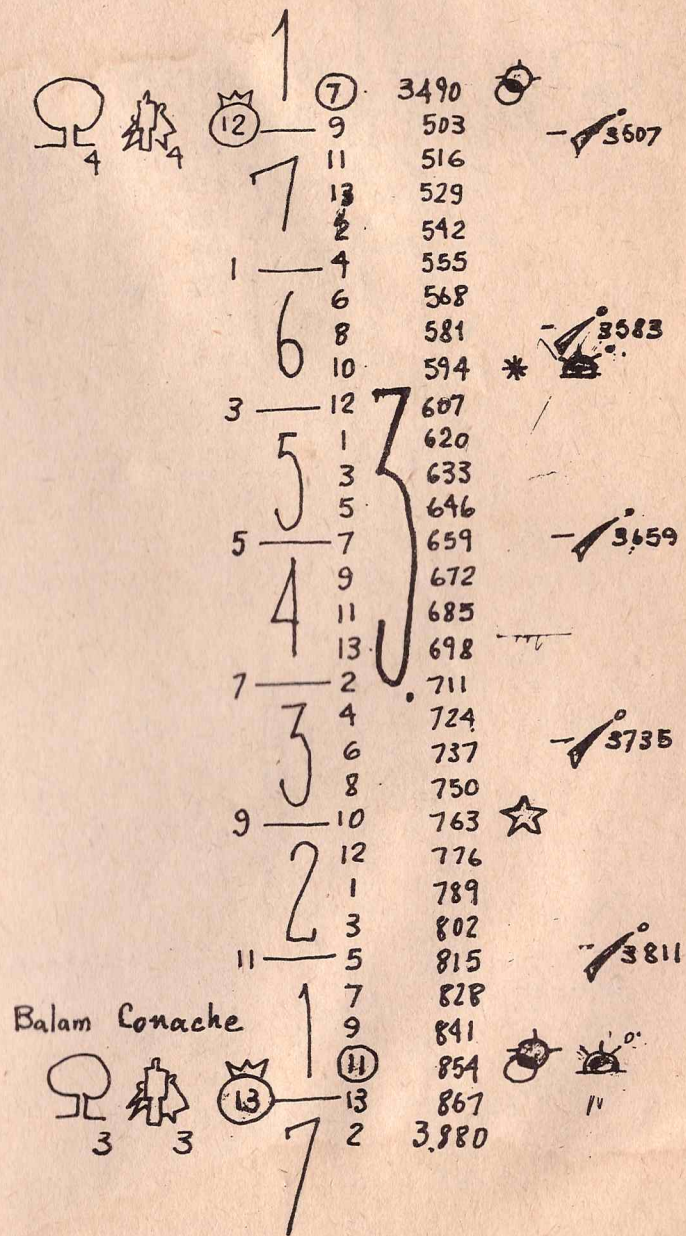 1
7 3490
12 — 9 503 – 3507
4 4
11 516
7 13 529
2 542
1 — 4 555
6 568
6 8 581 – 3583
10 594 *
3 — 12 7 607
1 620
5 3 633
5 646
5 — 7 659 – 3659
9 672
4 11 685
13 698
7 — 2 711
4 724
3 6 737 – 3735
8 750
9 — 10 763
12 776
2 1 789
3 802
11 — 5 815 3811
7 828
Balam Conache
1 9 841
11 854
13 — 13 867
3 3
2 3,880
7